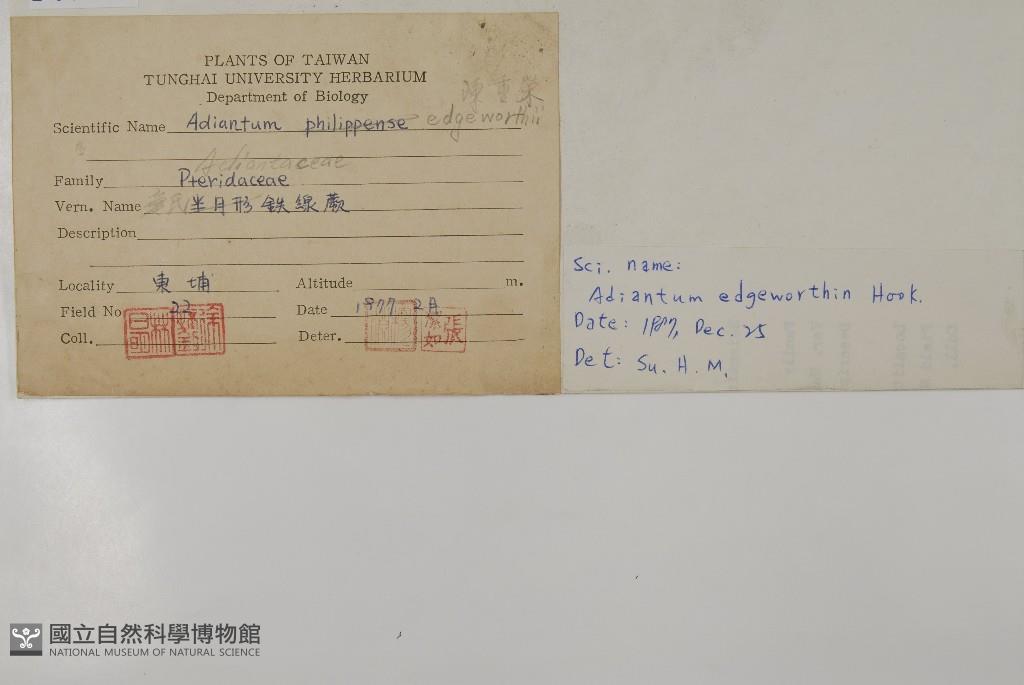 PLANTS OF TAIWAN
TUNGHAI UNIVERSITY HERBARIUM
Department of Biology
陳重榮
Scientific Name Adiantum philippense edgeworthii
Adiantaceae
Family Pteridaceae
Vern. Name 半月形鉄線蕨
Description
Locality 東埔 Altitude m.
Field No 22 Date 1977 2月
Coll. Deter. 張
Sci. name:
Adiantum edgeworthin Hook.
Date: 1987, Dec. 25
Det: Su. H. M.
國立自然科學博物館
NATIONAL MUSEUM OF NATURAL SCIENCE